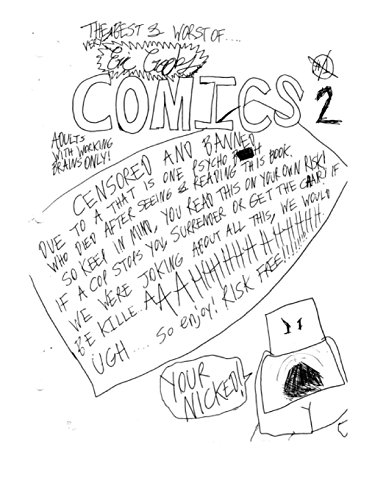 THE BEST & WORST OF....
COMICS 2
ADULTS
WITH WORKING
BRAINS ONLY!
CENSORED AND BANNED
DUE TO A THAT IS ONE PSYCHO
WHO DIED AFTER SEEING & READING THIS BOOK.
SO KEEP IN MIND, YOU READ THIS ON YOUR OWN RISK!
IF A COP STOPS YOU, SURRENDER OR GET THE CHAIR! IF
WE WERE JOKING ABOUT ALL THIS, WE WOULD
BE KILLE..AAAAHHHHHHAHHHHH
UGH.... SO ENJOY! RISK FREE!!!!!!!!
YOUR
NICKED!